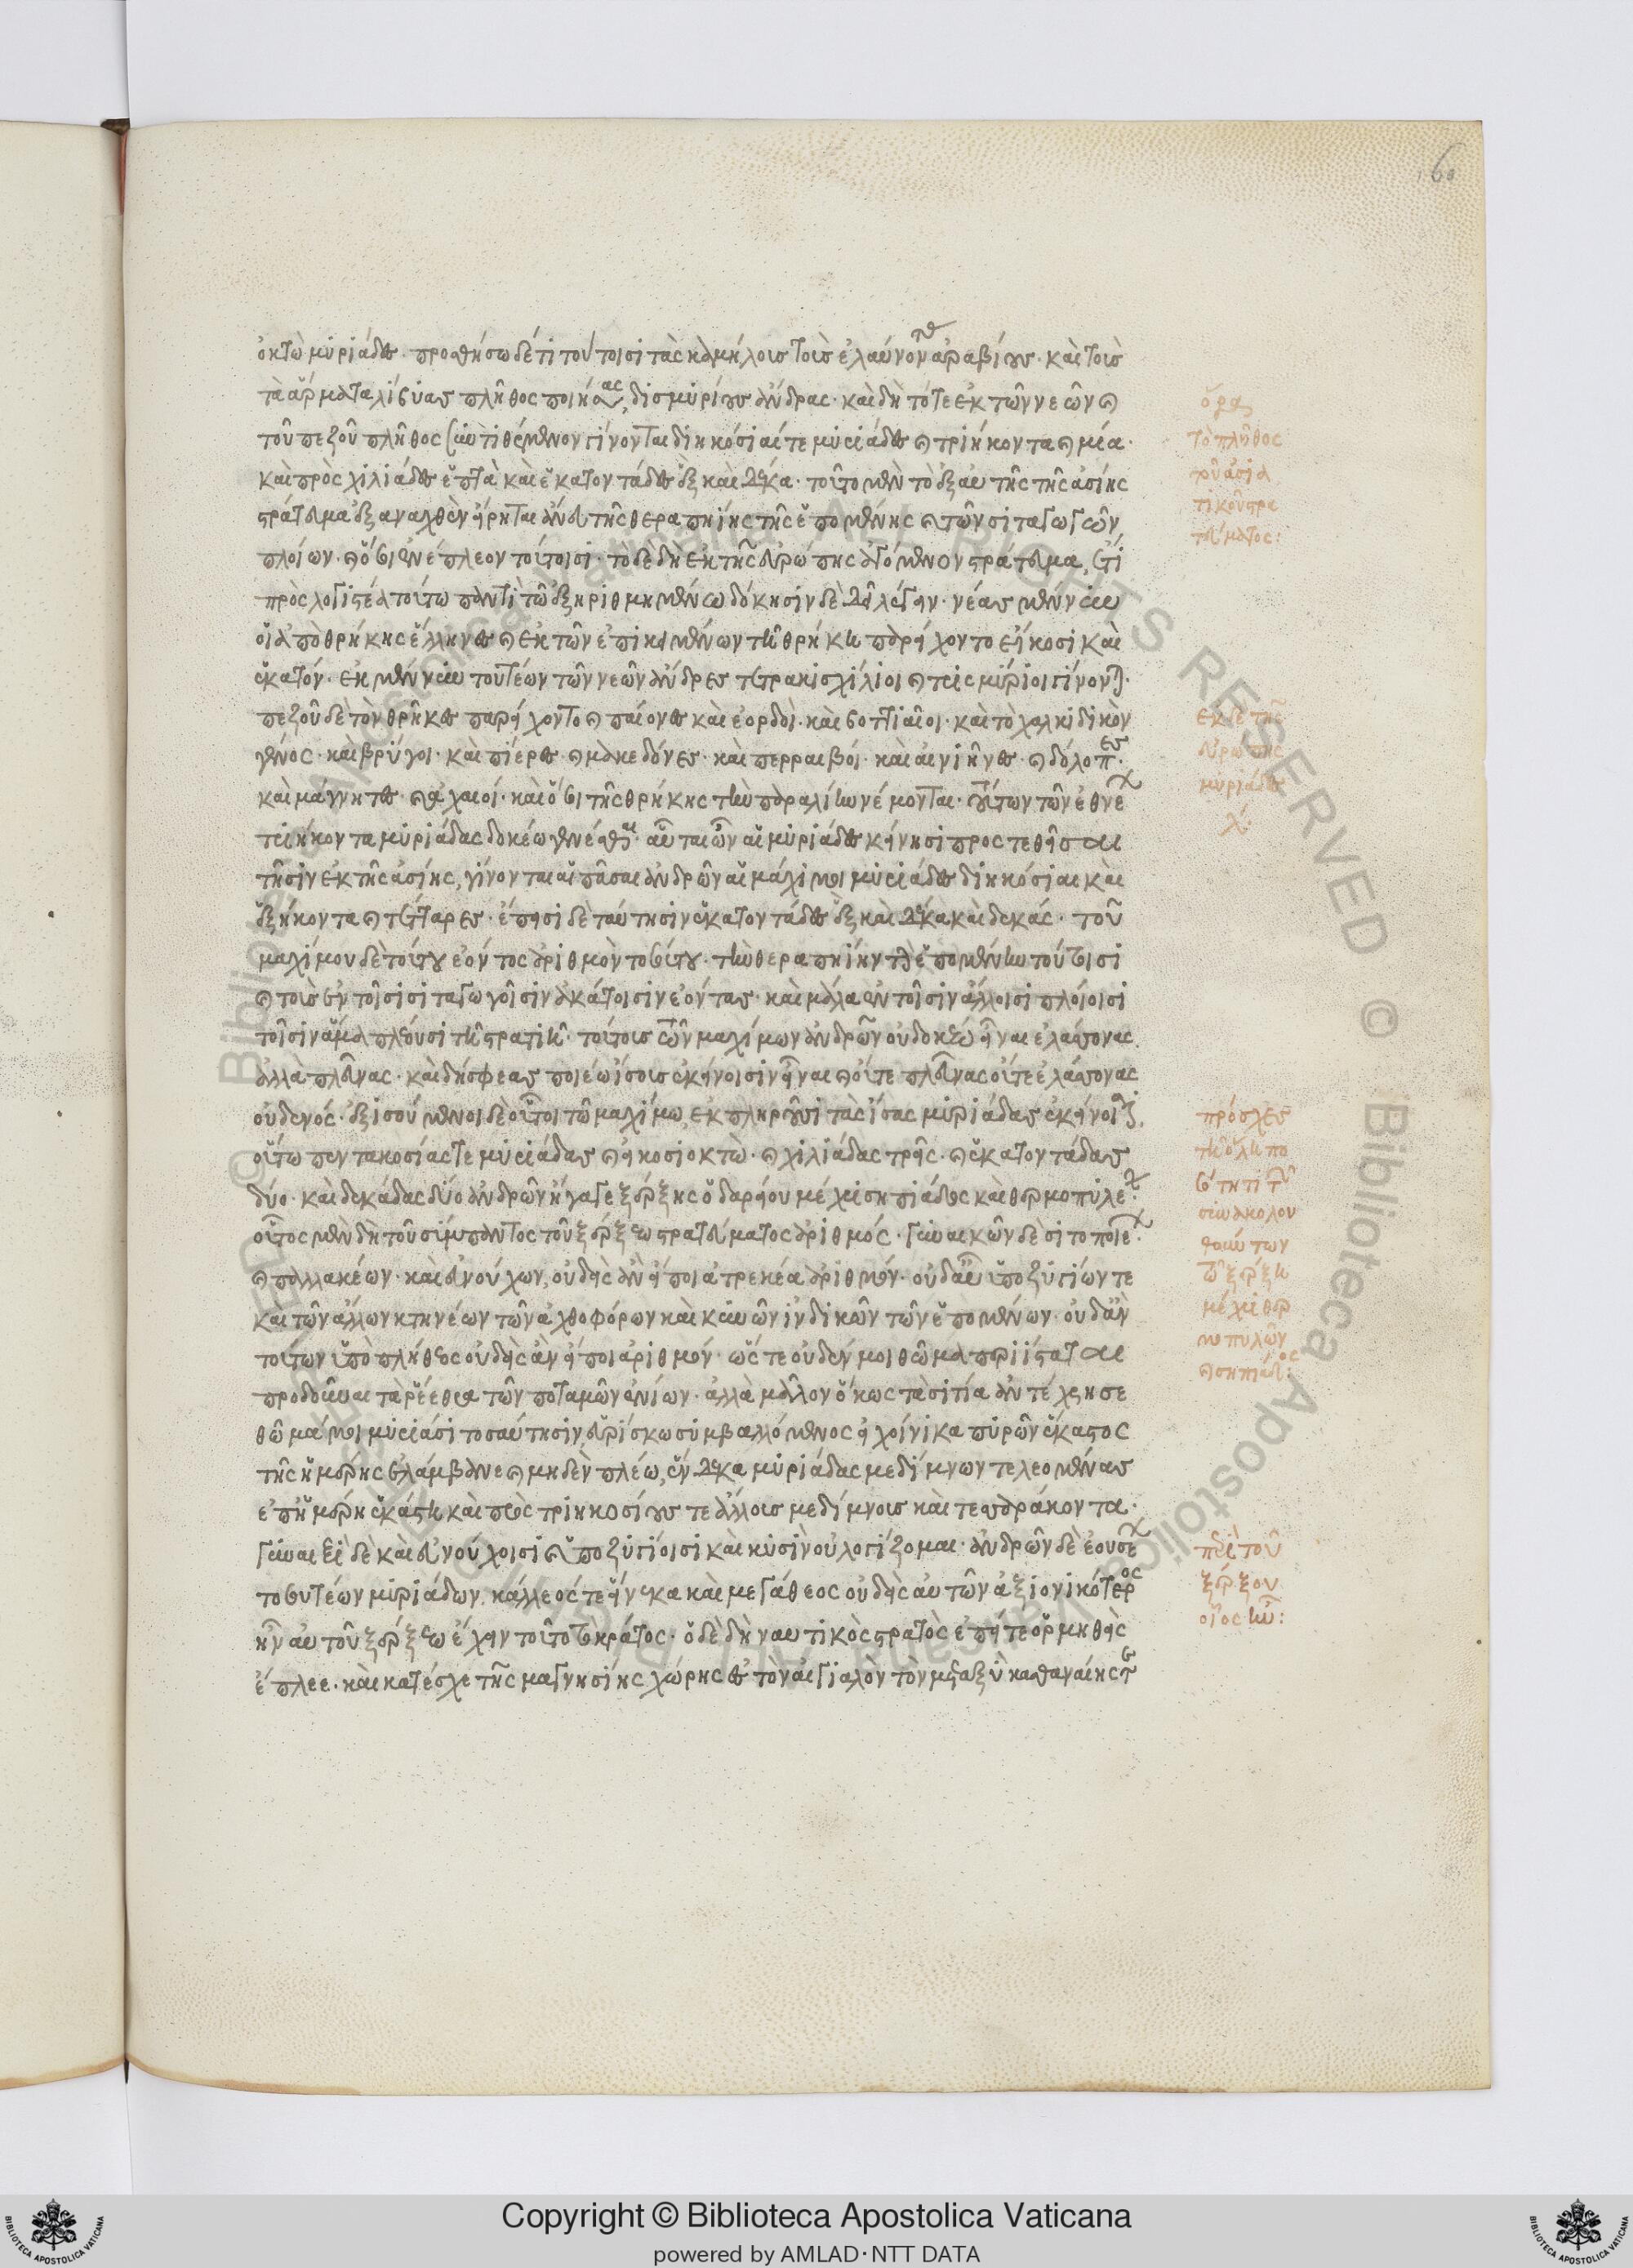 ὀκτὼ μυριάδες. προσθήσω δ' ἔτι τούτοισι τὰς καμήλους τοὺς ἐλαύνοντας ἀραβίους. καὶ τοὺς
τὰ ἅρματα λίβυας πλῆθος ποιήσας, δισμυρίους ἄνδρας. καὶ δὴ τό τε ἐκ τῶν νεῶν καὶ
τοῦ πεζοῦ πλῆθος συντιθέμενον γίνονται διηκόσιαί τε μυριάδες καὶ τριήκοντα καὶ μία.
καὶ πρὸς χιλιάδες ἑπτὰ καὶ ἑκατοντάδες ἓξ καὶ δέκα. τοῦτο μὲν τὸ ἐξ αὐτῆς τῆς ἀσίης
στράτευμα ἐξαναχθὲν εἴρηται ἄνευ τῆς θεραπηίης τῆς ἑπομένης καὶ τῶν σιταγωγῶν
πλοίων. καὶ ὅσοι ἐνέπλεον τούτοισι. τὸ δὲ δὴ ἐκ τῆς εὐρώπης ἀγόμενον στράτευμα, ἔτι
προσλογιστέα τούτω παντὶ τῶ ἐξηριθμημένω δόκησιν δὲ δεῖ λέγειν. νέας μέν νυν
οἱ ἀπὸ θρήκης ἕλληνες καὶ ἐκ τῶν ἐπικειμένων τῆ θρήκη παρείχοντο εἴκοσι καὶ
ἑκατόν. ἐκ μέν νυν τουτέων τῶν νεῶν ἄνδρες τετρακισχίλιοι καὶ τρὶς μύριοι γίνονται.
πεζοῦ δὲ τὸν θρήκες παρείχοντο καὶ παίονες καὶ ἐορδοὶ. καὶ βοττιαῖοι. καὶ τὸ χαλκιδικὸν
γένος. καὶ βρύγοι. καὶ πίερες. καὶ μακεδόνες. καὶ περραιβοί. καὶ αἰνιῆνες. καὶ δόλοπες.
καὶ μάγνητες. καὶ ἀχαιοί. καὶ ὅσοι τῆς θρήκης τὴν παραλίην νέμονται. τούτων τῶν ἐθνέων
τριήκοντα μυριάδας δοκέω γενέσθαι. αὗται ὦν αἱ μυριάδες κείνησι προστεθεῖσαι
τῆσιν ἐκ τῆς ἀσίης, γίνονται αἱ πᾶσαι ἀνδρῶν αἱ μάχιμοι μυριάδες διηκόσιαι καὶ
ἑξήκοντα καὶ τέσσαρες. ἔπεισι δὲ ταύτησιν ἑκατοντάδες ἓξ καὶ δέκα καὶ δεκάς. τοῦ
μαχίμου δὲ τούτου ἐόντος ἀριθμὸν τοσούτου. τὴν θεραπηίην τὴν ἑπομένην τούτοισι
καὶ τοὺς ἐν τοῖσι σιταγωγοῖσιν ἀκάτοισιν ἐόντας. καὶ μάλα ἐν τοῖσιν ἄλλοισι πλοίοισι
τοῖσιν ἅμα πλέουσι τῆ στρατιῆ. τούτους τῶν μαχίμων ἀνδρῶν οὐ δοκέω εἶναι ἐλάσσονας.
ἀλλὰ πλεῦνας. καὶ δή σφεας ποιέω ἴσους ἐκείνοισιν εἶναι καὶ οὔτε πλεῦνας οὔτε ἐλάσσονας
οὐδενός. ἐξισούμενοι δὲ οὗτοι τῶ μαχίμω, ἐκπληροῦσι τὰς ἴσας μυριάδας ἐκείνοισι.
οὕτω πεντακοσίας τε μυριάδας καὶ εἴκοσι ὀκτὼ. καὶ χιλιάδας τρεῖς. καὶ ἑκατοντάδας
δύο. καὶ δεκάδας δύο ἀνδρῶν ἤγαγε ξέρξης ὁ δαρείου μέχρι σηπιάδος καὶ θερμοπυλέων.
οὗτος μὲν δὴ τοῦ σύμπαντος τοῦ ξέρξεω στρατεύματος ἀριθμός. γυναικῶν δὲ σιτοποιῶν.
καὶ παλλακέων. καὶ εὐνούχων, οὐδεὶς ἂν εἴποι ἀτρεκέα ἀριθμόν. οὐδ' αὖ ὑποζυγίων τε
καὶ τῶν ἄλλων κτηνέων τῶν ἀχθοφόρων καὶ κυνῶν ἰνδικῶν τῶν ἑπομένων. οὐδ' ἂν
τούτων ὑπὸ πλήθεος οὐδεὶς ἂν εἴποι ἀριθμόν. ὥστε οὐδέν μοι θῶμα παρίσταται
προδοῦναι τὰ ῥέεθρα τῶν ποταμῶν ἐνίων. ἀλλὰ μᾶλλον ὅκως τὰ σιτία ἀντέχρησε
θῶμά μοι μυριάσι τοσαύτησιν, εὑρίσκω συμβαλλόμενος εἰ χοίνικα πυρῶν ἕκαστος
τῆς ἡμέρης ἐλάμβανε καὶ μηδὲν πλέω, ἕνδεκα μυριάδας μεδίμνων τελεομένας
ἐπ' ἡμέρη ἑκάστη καὶ πρὸς τριηκοσίους τε ἄλλους μεδίμνους καὶ τεσσεράκοντα.
γυναιξὶ δὲ καὶ εὐνούχοισι καὶ ὑποζυγίοισι καὶ κυσὶν οὐ λογίζομαι. ἀνδρῶν δὲ ἐουσέων
τοσουτέων μυριάδων. κάλλεός τε εἵνεκα καὶ μεγάθεος οὐδεὶς αὐτῶν ἀξιονικότερος
ἦν αὐτοῦ ξέρξεω ἔχειν τοῦτο τὸ κράτος. ὁ δὲ δὴ ναυτικὸς στρατὸς ἐπεί τε ὁρμηθεὶς
ἔπλεε. καὶ κατέσχε τῆς μαγνησίης χώρης ἐς τὸν αἰγιαλὸν τὸν μεταξὺ κασθαναίης τε
ὅρα
τὸ πλῆθος
τοῦ ἀσια
τικοῦ στρα
τεύματος:
ἐκ δὲ τῆς
εὐρώπης
μυριάδες
λ:
πρόσχες
τῆ ὅλη πο
σότητι τῶν
συνακολου
θούντων
τῶ ξέρξη
μέχρι θερ
μοπυλῶν
καὶ σηπιάδος:
περὶ τοῦ
ξέρξου
οἷος ἦν:
Copyright © Biblioteca Apostolica Vaticana
powered by AMLAD·NTT DATA